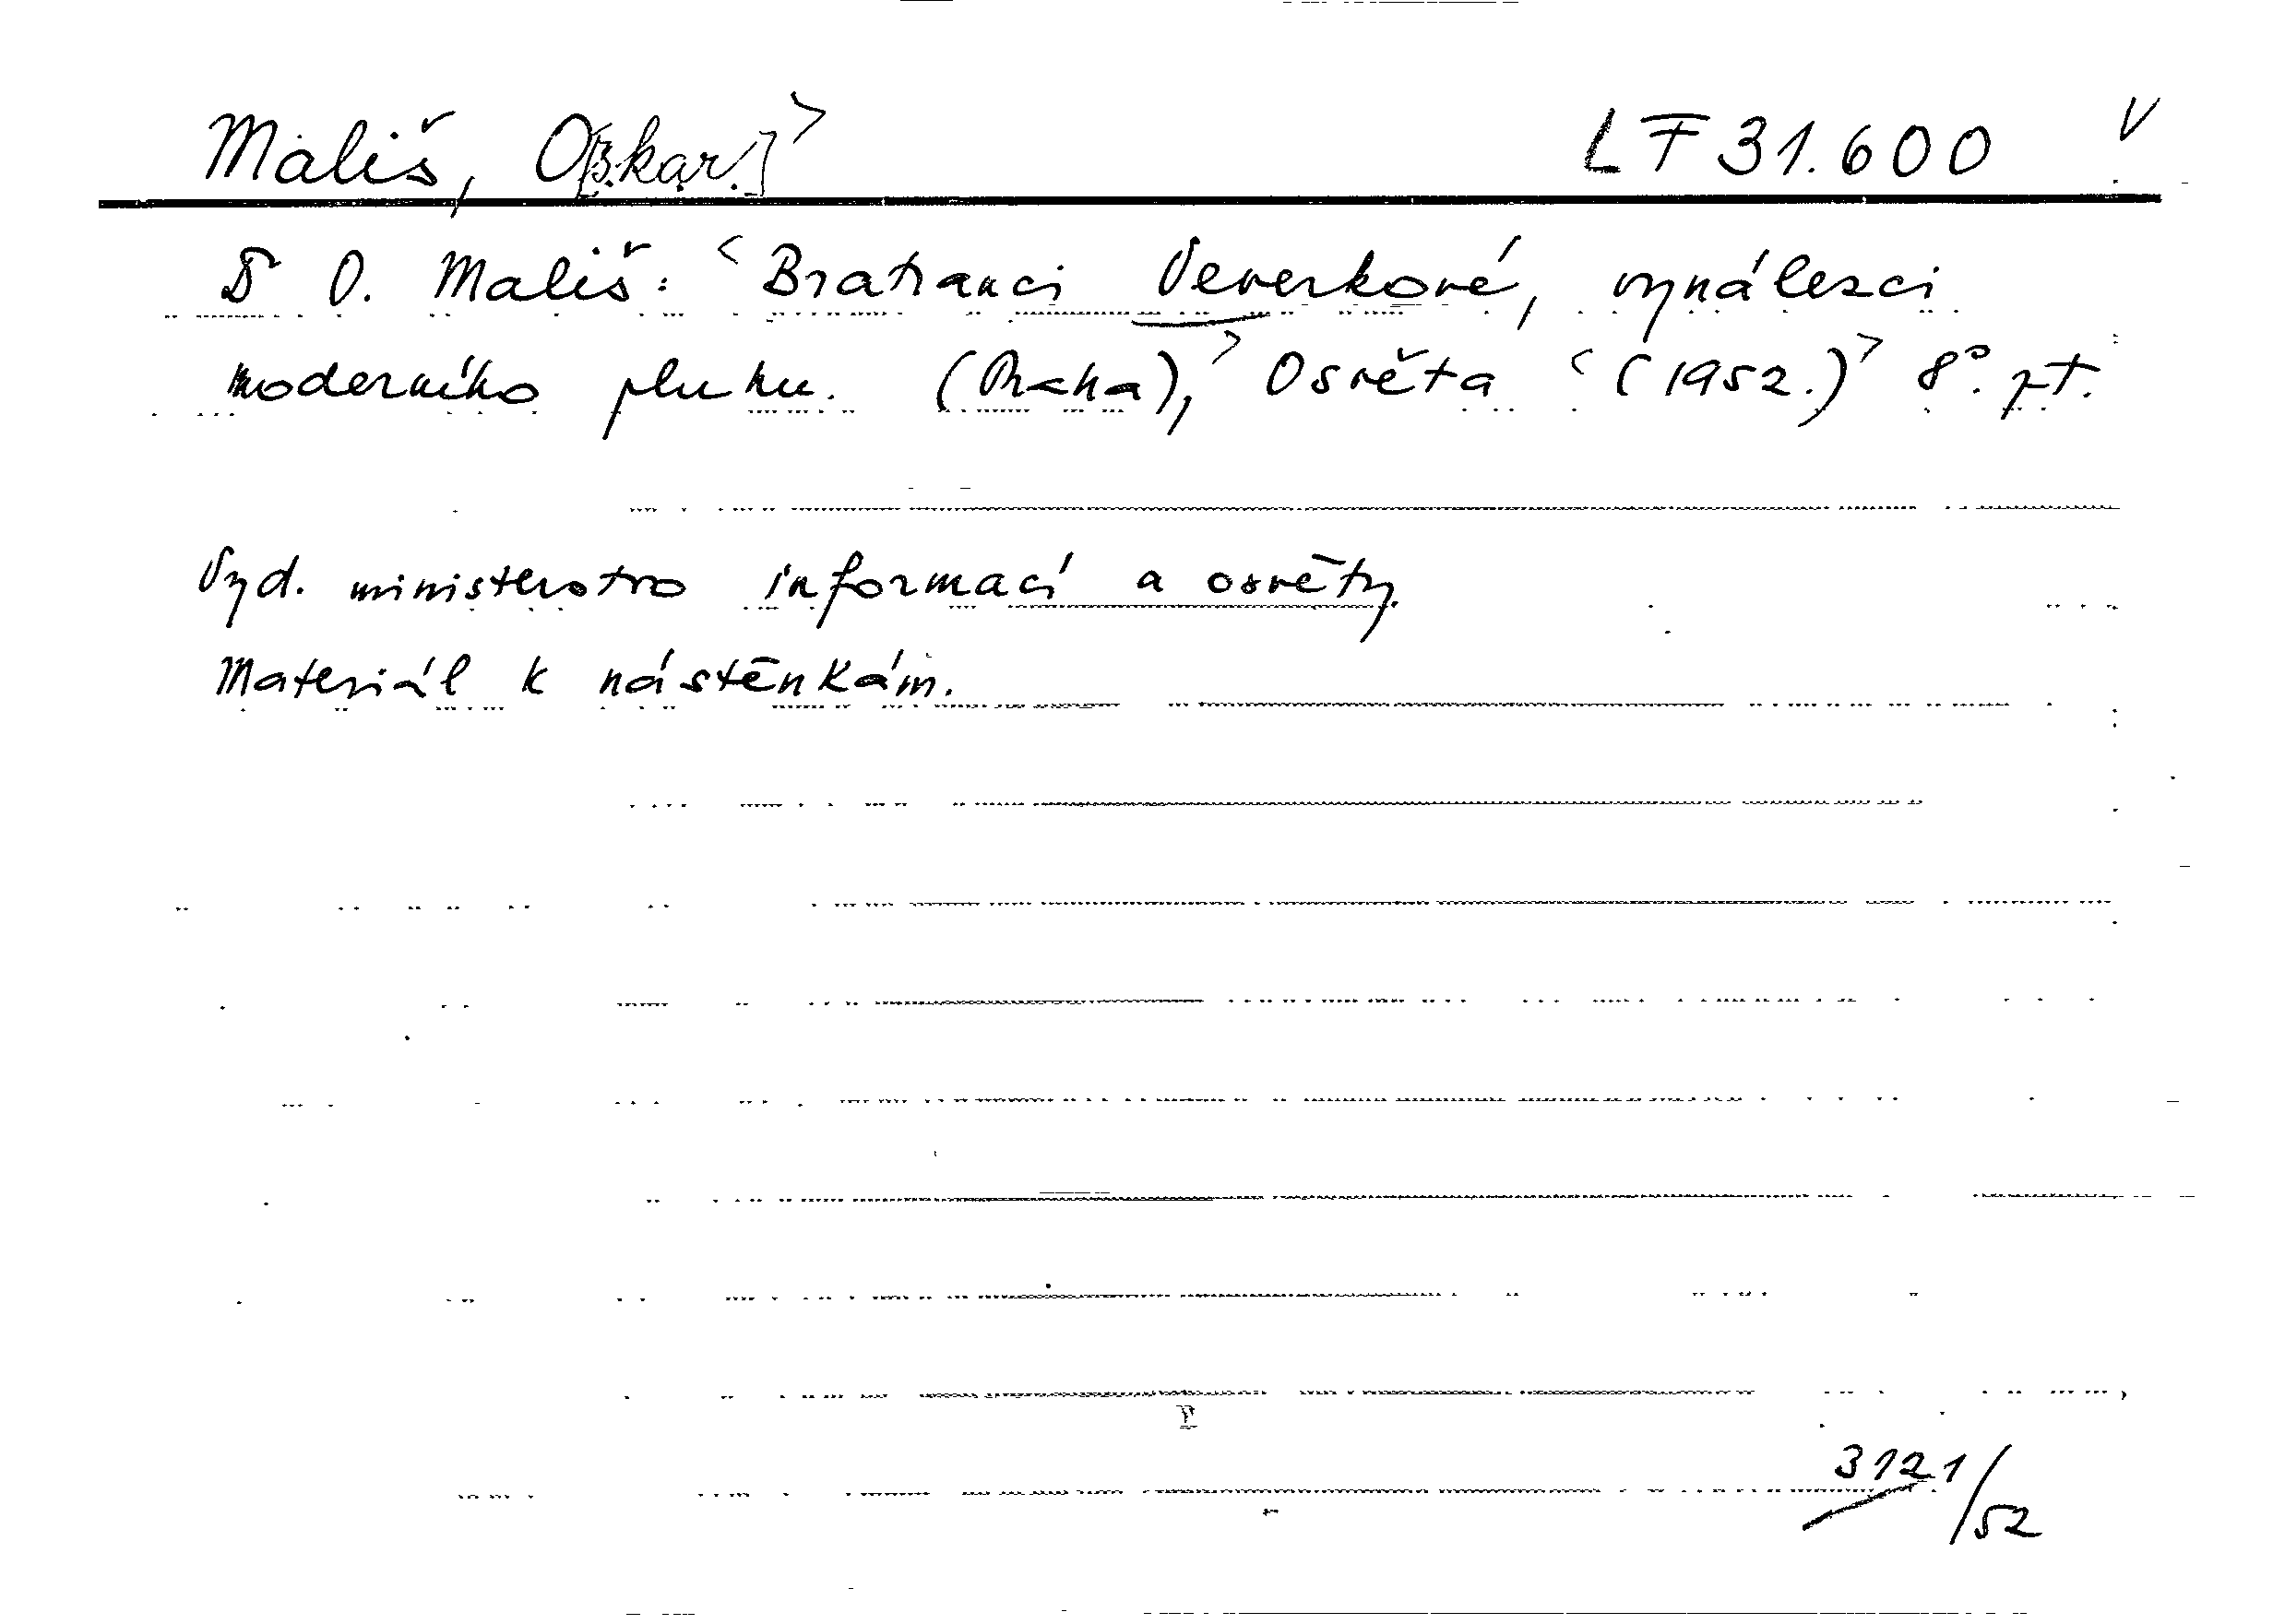 Mališ, O[skar.]> LF 31.600 V
O. Mališ: <Bratranci Veverkové, vynálezci
moderního pluhu. (Praha),> Osvěta <(1952.)> 8°. pt.
Vyd. ministerstvo informací a osvěty.
Materiál k nástěnkám.
3121/52